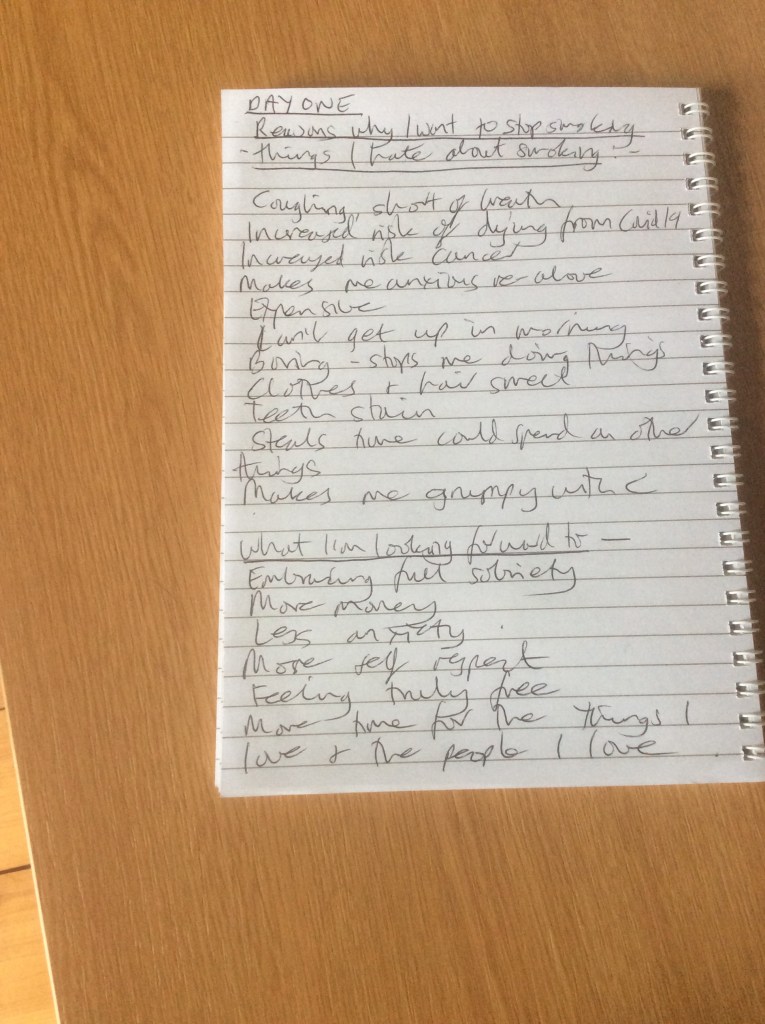 DAY ONE
Reasons why I want to stop smoking
- things I hate about smoking :-
Coughing, short of breath
Increased risk of dying from Covid 19
Increased risk cancer
Makes me anxious re above
Expensive
Can't get up in morning
Boring - stops me doing things
Clothes + hair smell
Teeth stain
Steals time could spend on other
things
Makes me grumpy with C
What I'm looking forward to —
Embracing full sobriety
More money
Less anxiety
More self respect
Feeling truly free
More time for the things I
love & the people I love